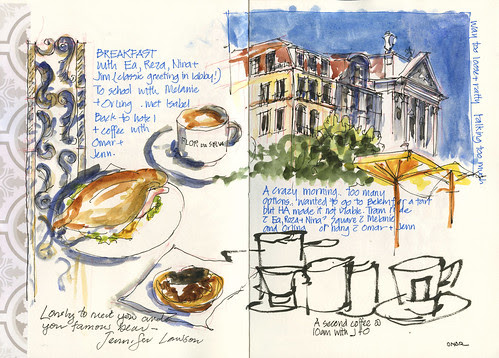 BREAKFAST
with Ea, Reza, Nina+
Jim (classic greeting in lobby!)
To school with Melanie
+ Orling. met Isabel.
Back to hotel
+ coffee with
Omar +
Jenn.
FLOR DA SELVA
Lovely to meet you and
your famous bear -
Jennifer Lawson
Way too loose + ratty talking too much
A crazy morning.. too many
options.. wanted to go to Belem for a tart
but HA made it not viable. Tram ride
c Ea, Reza + Nina? Square c Melanie
and Orling or hang c Omar + Jenn
A second coffee @
10am with J + O
OMAR